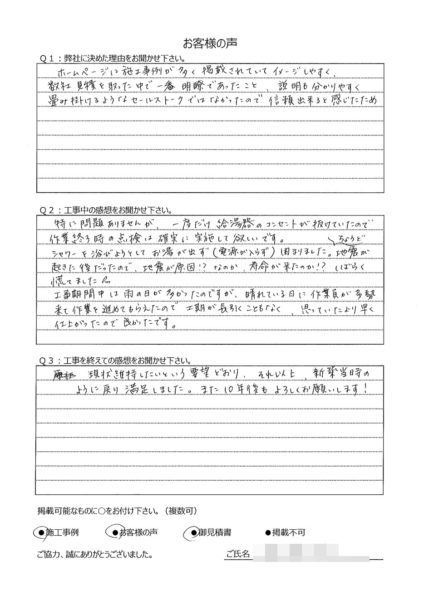 お客様の声
Q1：弊社に決めた理由をお聞かせ下さい。
ホームページに施工事例が多く掲載されていてイメージしやすく、
数社見積を取った中で一番明瞭であったこと、説明も分かりやすく
畳み掛けるようなセールストークではなかったので信頼出来ると感じたため
Q2：工事中の感想をお聞かせ下さい。
特に問題ありませんが、一度だけ給湯器のコンセントが抜けていたので
作業終了時の点検は確実に実施して欲しいです。
ちょうど
シャワーを浴びようとしてお湯が出ず(電源が入らず)困まりました。地震が
起きた後だったので、地震が原因!?なのか、寿命が来たのか!?しばらく
慌てました
工事期間中は雨の日が多かったのですが、晴れている日に作業員が多勢
来て作業を進めてもらえたので工期が長引くこともなく、思っていたより早く
仕上がったので良かったです。
Q3：工事を終えての感想をお聞かせ下さい。
現状維持したいという要望どおり、それ以上、新築当時の
ように戻り満足しました。また10年後もよろしくお願いします！
掲載可能なものに○をお付け下さい。（複数可）
●施工事例 ●お客様の声 ●御見積書 ●掲載不可
ご協力、誠にありがとうございました。 ご氏名